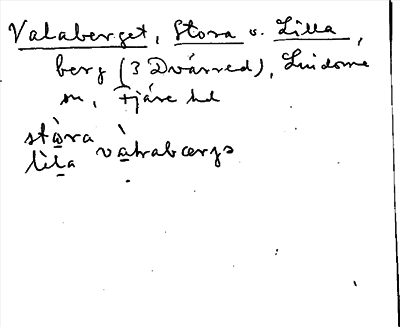 Valaberget, Stora o. Lilla,
berg (3 Dvärred), Lindome
sn, Fjäre hd
stòra
lìla vàhabærgs